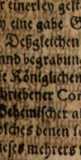 einerley gest
eine gabe G
Deßgleichen
und begrabun
ie Königlichen
hriebener Con
Behemischer a
sches denen
ieses mehrers